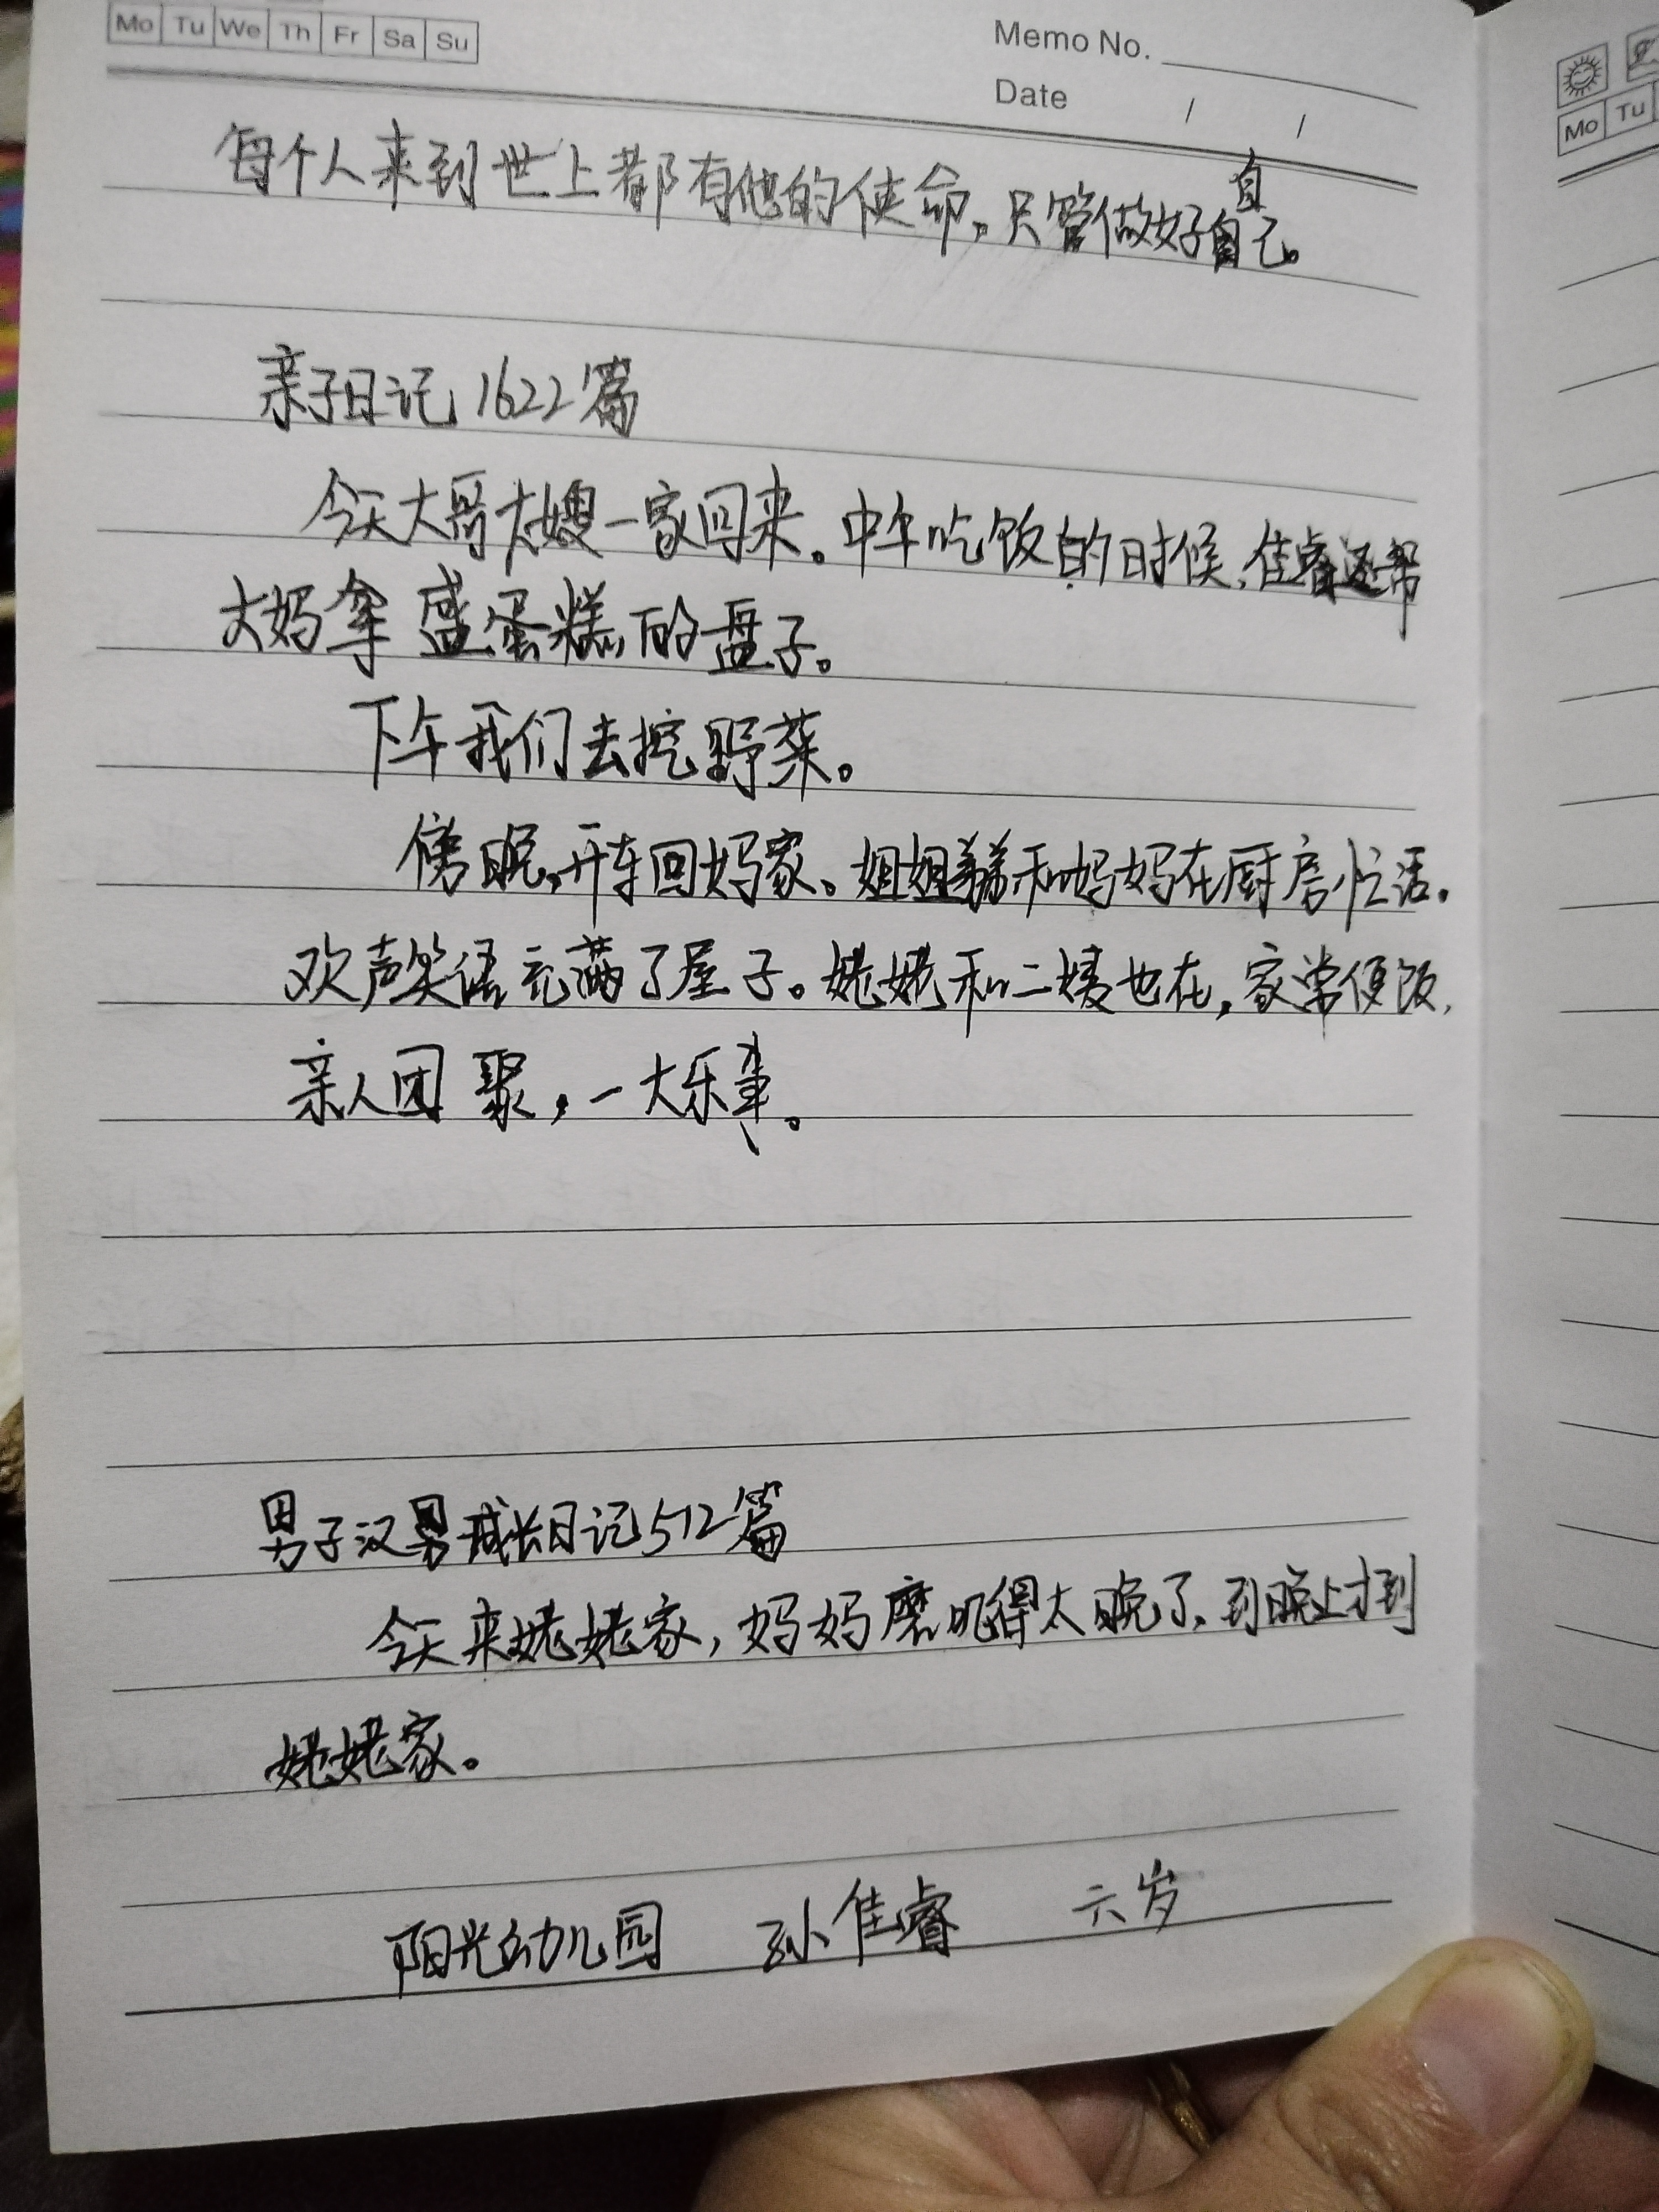 Mo Tu We Th Fr Sa Su
Memo No.
Date / /
每个人来到世上都有他的使命。只管做好自己。
亲子日记1622篇
今天大哥大嫂一家回来。中午吃饭的时候,佳睿还帮
大妈拿盛蛋糕的盘子。
下午我们去挖野菜。
傍晚,开车回妈家。姐姐和妈妈在厨房忙活。
欢声笑语充满了屋子。姥姥和二姨也在,家常便饭,
亲人团聚,一大乐事。
男子汉成长日记512篇
今天来姥姥家,妈妈磨叽得太晚了,到晚上才到
姥姥家。
阳光幼儿园 孙佳睿 六岁
Mo Tu